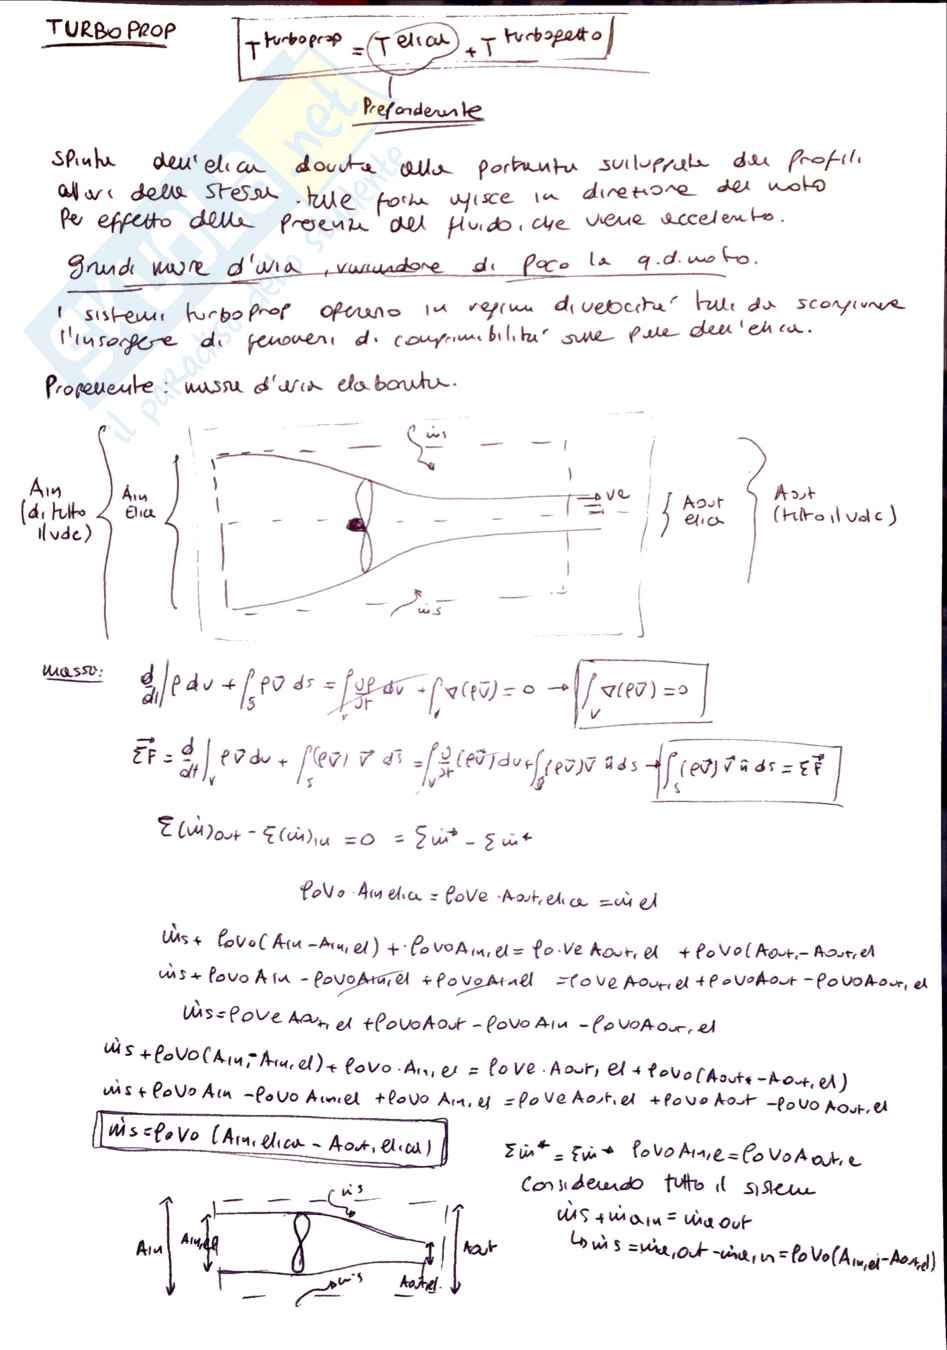 TURBOPROP
T turboprop = T elica + T turbogetto
Preponderante
Spinta dell'elica dovuta alla portanta sviluppata dei profili
alari della stessa. tale forza agisce in direzione del moto
Per effetto della presenza del fluido, che viene accelerato.
Grandi masse d'aria, variandone di poco la q.d.moto.
I sistemi turboprop operano in regimi di velocità tali da scongiurare
l'insorgere di fenomeni di comprimibilità sulle pale dell'elica.
Propellente: massa d'aria elaborata.
ṁs
AIN
(di tutto
il vdc)
AIN
Elica
ve
Aout
elica
Aout
(tutto il vdc)
ṁs
massa: d/dt ∫ρ dv + ∫s ρv̄ ds = ∫v ∂ρ/∂t dv + ∫v ∇(ρv̄) = 0 → ∫v ∇(ρv̄) = 0
ΣF⃗ = d/dt ∫v ρv̄ dv + ∫s (ρv̄) v̄ ds = ∫v ∂/∂t (ρv̄) dv + ∫s (ρv̄) v̄ n̄ ds → ∫s (ρv̄) v̄ n̄ ds = ΣF⃗
Σ(ṁ)out - Σ(ṁ)in = 0 = Σṁ→ - Σṁ←
ρoVo · Ain elica = ρoVe · Aout, elica = ṁ el
ṁs + ρoVo (Ain - Ain, el) + ρoVo Ain, el = ρo · Ve Aout, el + ρoVo (Aout - Aout, el
ṁs + ρoVo Ain - ρoVo Ain, el + ρoVo Ain el = ρoVe Aout, el + ρoVo Aout - ρoVo Aout, el
ṁs = ρoVe Aout, el + ρoVo Aout - ρoVo Ain - ρoVo Aout, el
ṁs + ρoVo (Ain - Ain, el) + ρoVo · Ain, el = ρoVe · Aout, el + ρoVo (Aout - Aout, el)
ṁs + ρoVo Ain - ρoVo Ain, el + ρoVo Ain, el = ρoVe Aout, el + ρoVo Aout - ρoVo Aout, el
ṁs = ρoVo (Ain, elica - Aout, elica)
Σṁ← = Σṁ→ ρoVo Ain, e = ρoVo Aout, e
Considerando tutto il sistema
ṁs + ṁa in = ṁa out
↳ ṁs = ṁa, out - ṁa, in = ρoVo (Ain, el - Aout, el)
ṁs
Ain
Ain, el
Aout
Aout, el.
ṁs
skuola.net
il paradiso dello studente